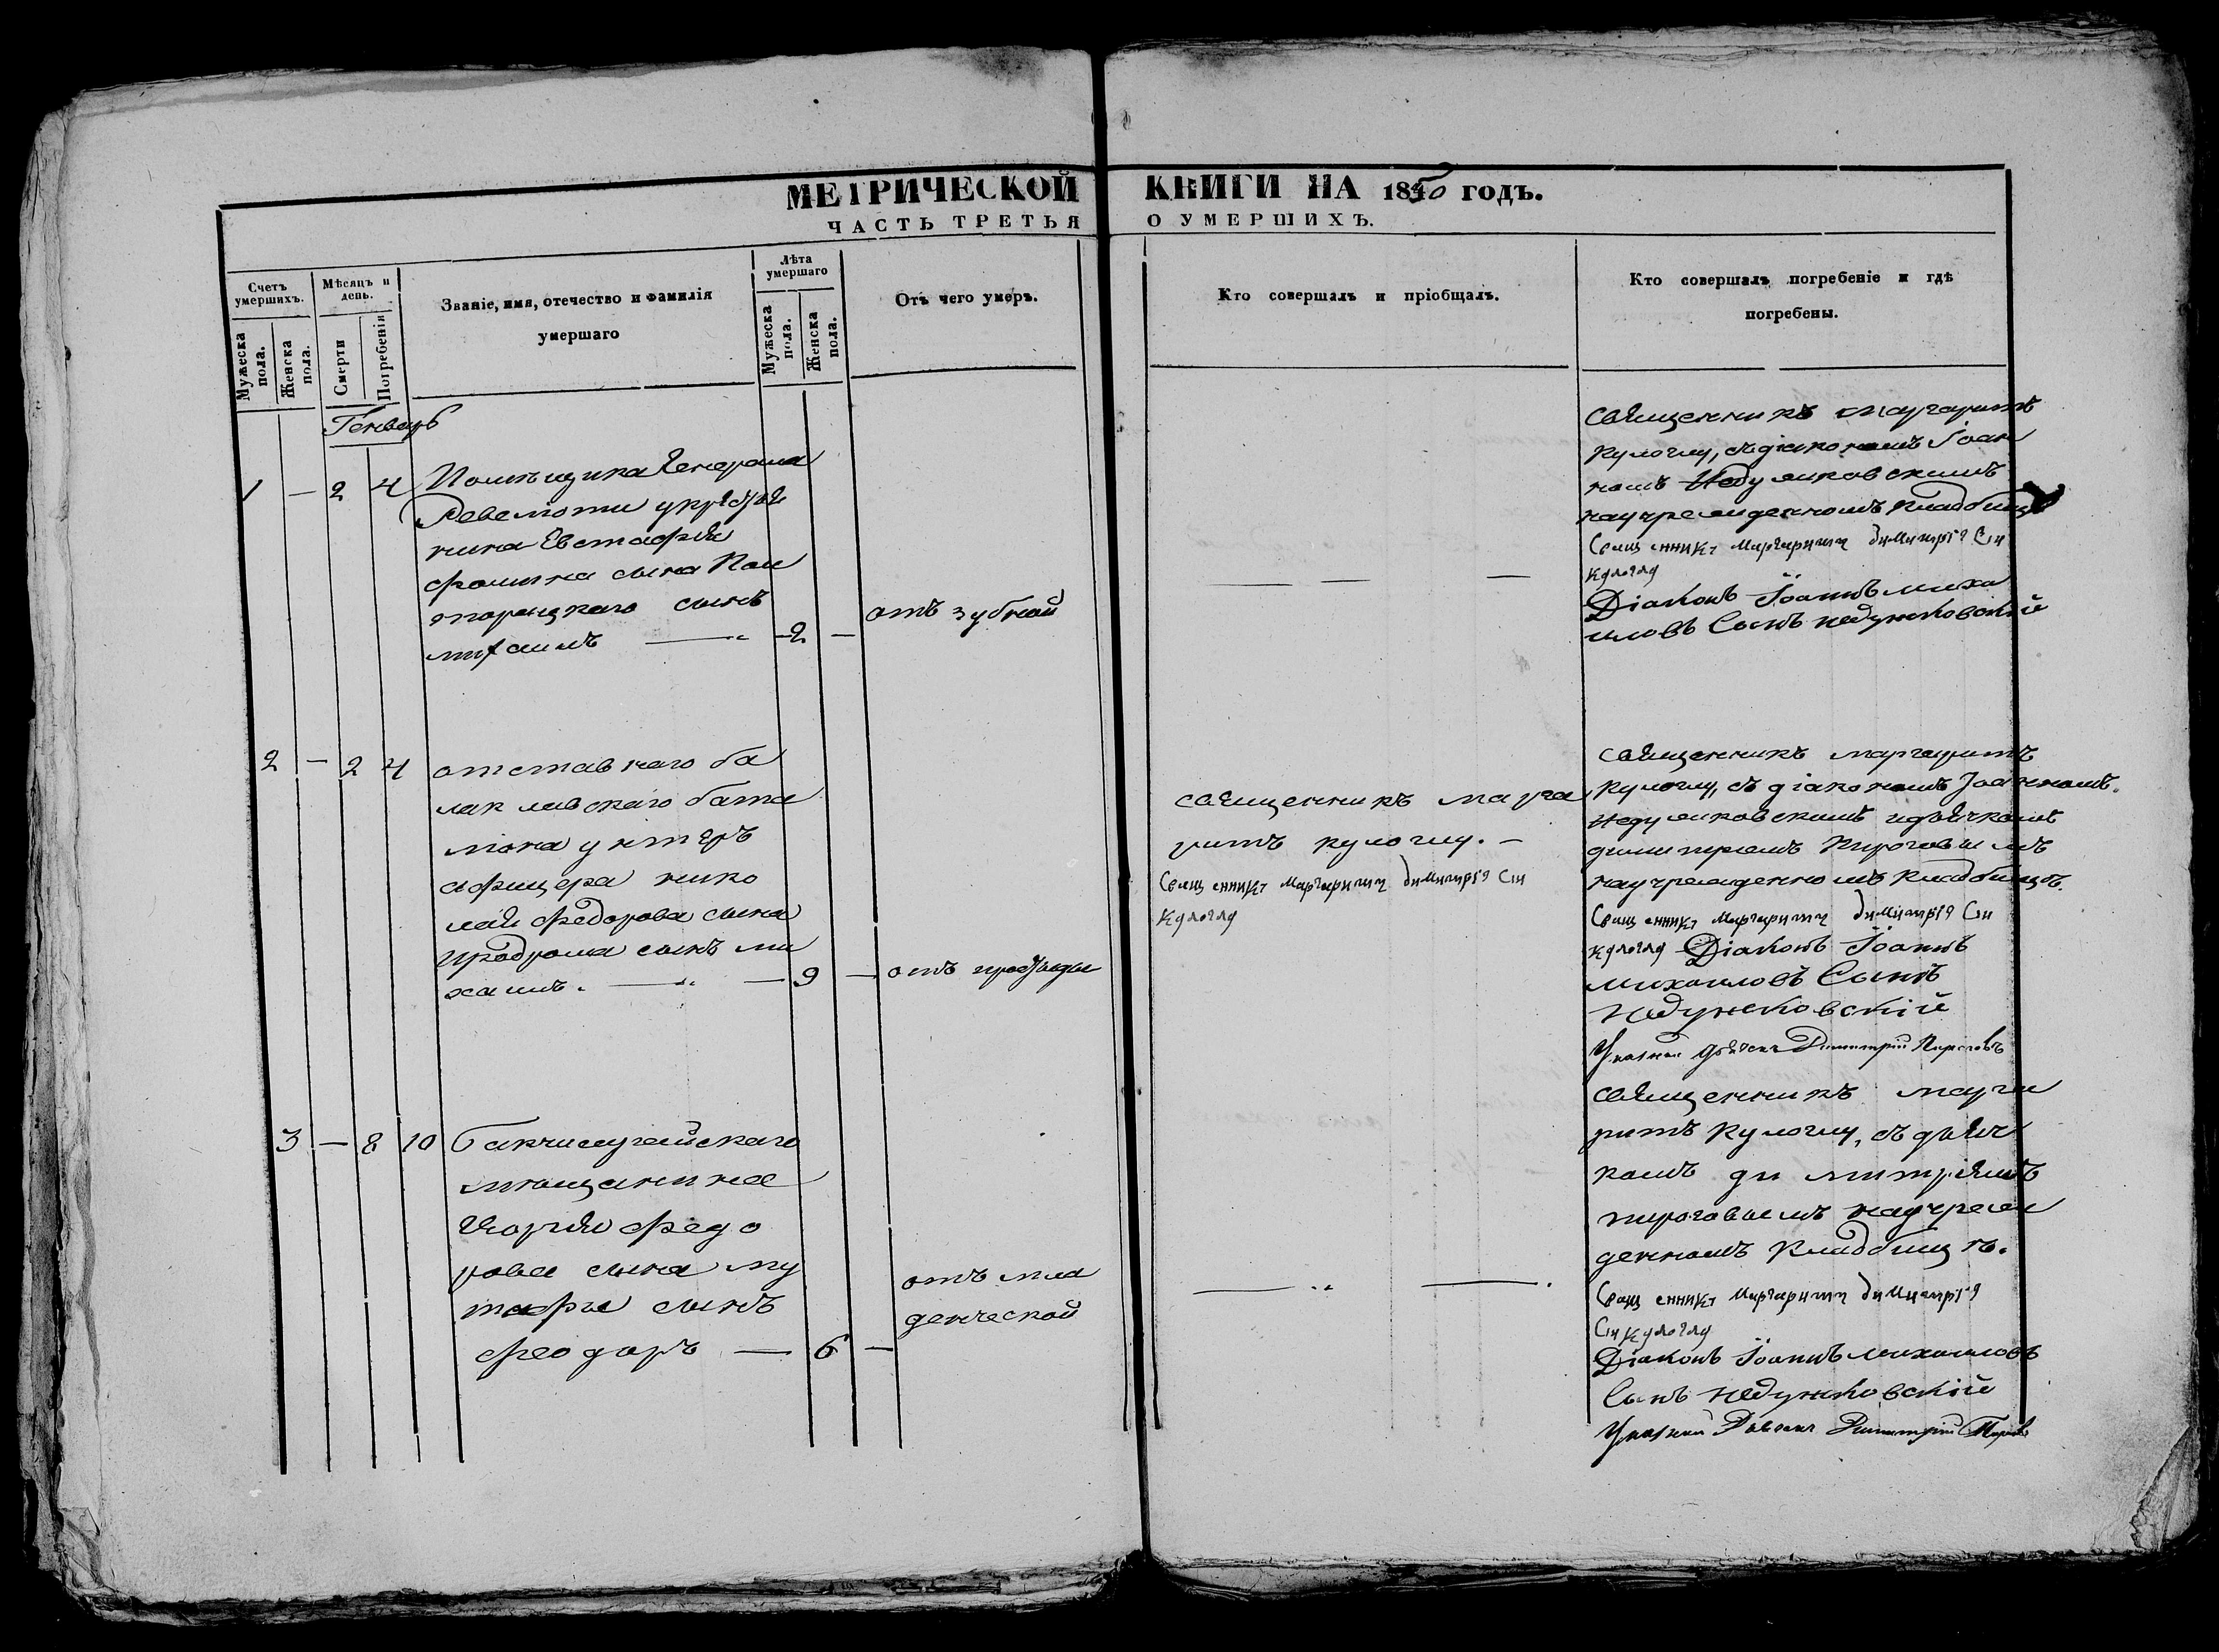 МЕТРИЧЕСКОЙ КНИГИ НА 1850 ГОДЪ.
ЧАСТЬ ТРЕТЬЯ О УМЕРШИХЪ.
Счетъ умершихъ.
Мужеска пола.
Женска пола.
Мѣсяцъ и день.
Смерти
Погребенія
Званіе, имя, отечество и фамилія
умершаго
Лѣта умершаго
Мужеска пола.
Женска пола.
Отъ чего умеръ.
Кто совершалъ и пріобщалъ.
Кто совершалъ погребеніе и гдѣ
погребены.
Генварь
1 — 2 4
Помѣщика Генерала
Ревелоти
нина Евстафія
сына
сынъ
— 2 —
отъ зубной
— — —
священникъ маргаритъ
кулоглу, съ діакономъ Іоан
номъ Недужковскимъ
научрежденномъ кладбищѣ
Священникъ Маргаритъ Димитрія Сін
Кулоглу
Діаконъ Іоаннъ миха
иловъ Сынъ недужковскій
2 — 2 4
отставнаго ба
лаклавскаго бата
ліона унтеръ
офицера нико
лая федорова сына
продрома сынъ ми
хаилъ. — 9 —
отъ простуды
священникъ марга
ритъ кулоглу. —
Священникъ Маргаритъ Димитрія Сін
Кулоглу
священникъ маргаритъ
кулоглу, съ діакономъ Іоанномъ.
Недужковскимъ идьячкомъ
димитріемъ Пироговымъ
научрежденномъ кладбищѣ.
Священникъ Маргаритъ Димитрія Сін
Кулоглу Діаконъ Іоаннъ
михаиловъ Сынъ
Недужковскій
Указной Дьячекъ Димитрій Пироговъ
3 — 8 10
Бакчисарайскаго
мѣщанина
Георгія федо
рова сына му
тафи сынъ
феодоръ — 6 —
отъ мла
денческой
— " —
священникъ марга
ритъ кулоглу, съ дьяч
комъ димитріемъ
пироговымъ научреж
денномъ кладбищѣ.
Священникъ Маргаритъ Димитрія
Сін Кулоглу
Діаконъ Іоаннъ михаиловъ
Сынъ недужковскій
Указной Дьячекъ Димитрій Пирогов